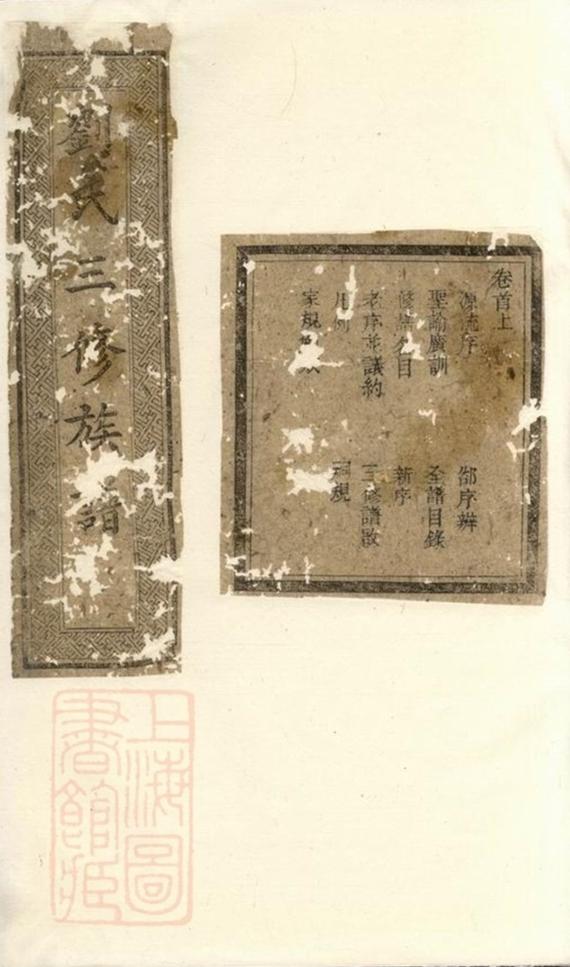 劉氏三修族譜
卷首上
源流序
郤序辨
聖諭廣訓
全譜目錄
修譜名目
新序
老序並議約
三修譜啟
凡例
祠規
家規
上海圖書館藏